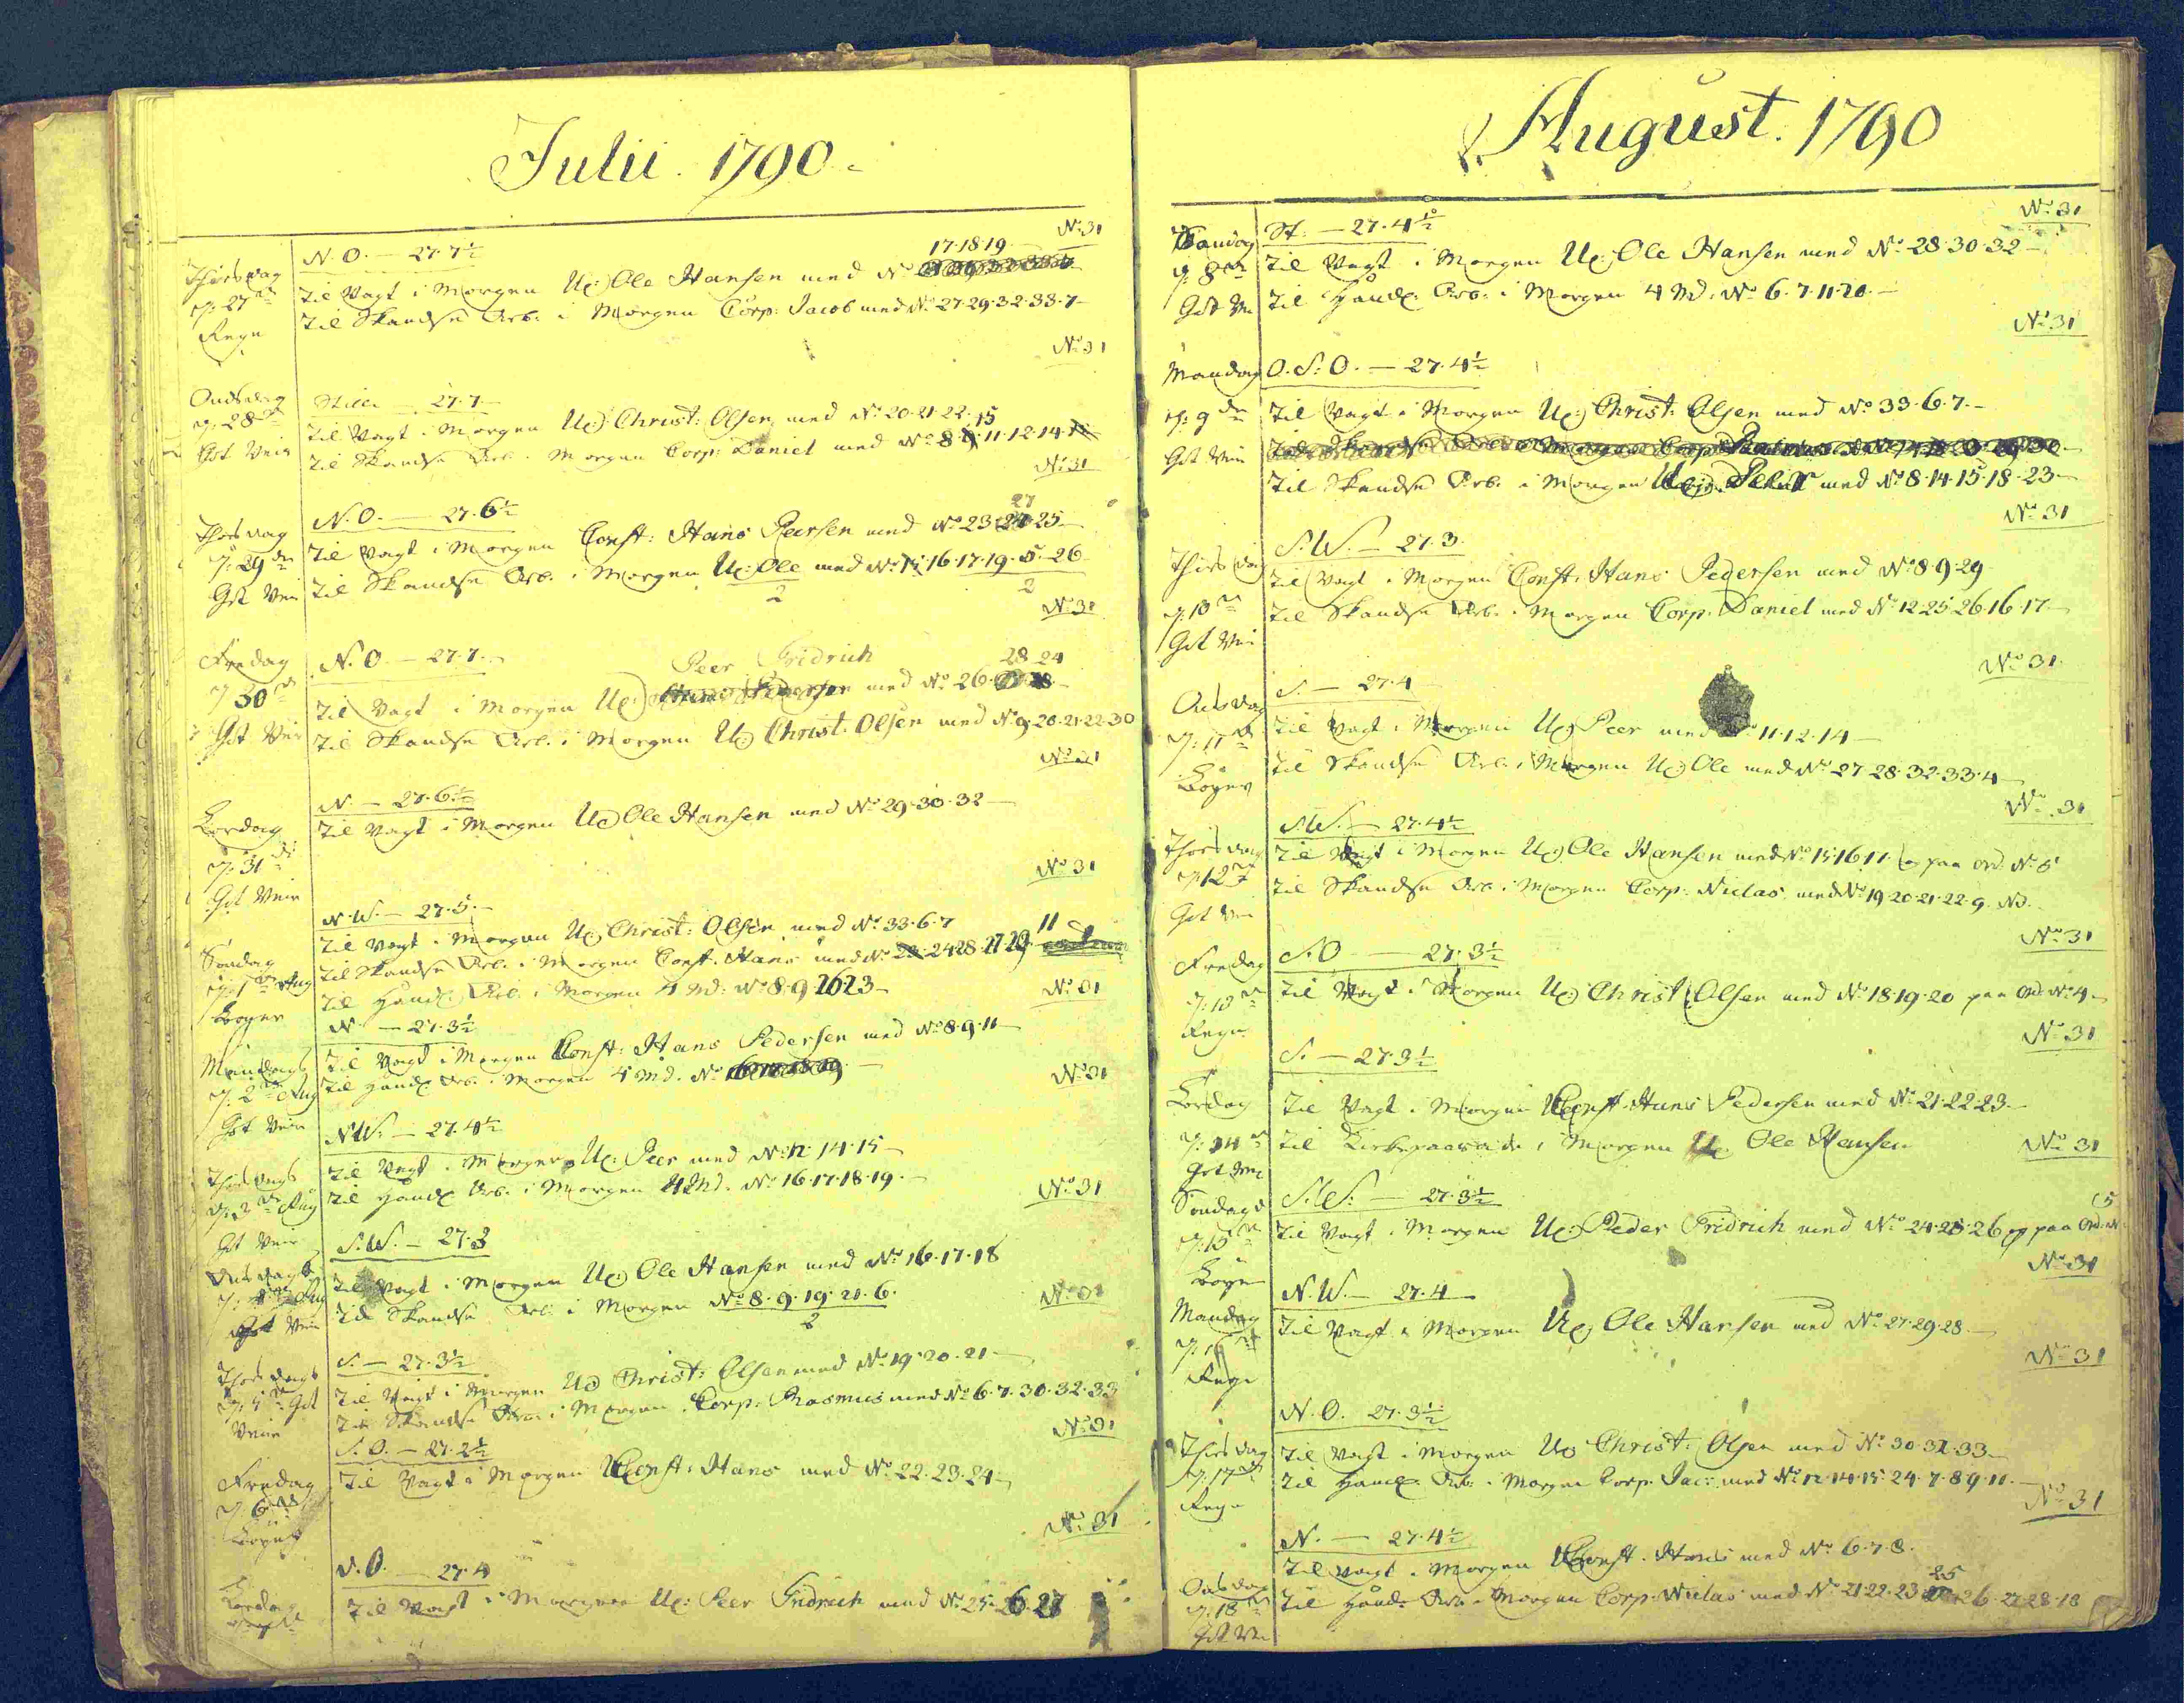 Julii. 1790.
No 31
N.O. — 27.7½
17.18.19.
Thirsdag til Vagt i Morgen Uc: Ole Hansen med No
d: 27de til Skandse Arb. i Morgen Corp: Jacob med No 27.29.32.33.7.
Regn
No 31
Onsdag Stille — 27.7.
d: 28de til Vagt i Morgen Uc: Christ: Olsen med No 20.21.22.15
Got Veir til Skandse Arb. i Morgen Corp: Daniel med No 8.11.12.14.
No 31
N.O. — 27.6½
27
Thorsdag til Vagt i Morgen Const: Hans Peersen med No 23.25
d: 29de
Got Veir til Skandse Arb. i Morgen Uc: Ole med No 16.17.19.5.26
2 2
No 31
Fredag N.O. — 27.7.
Peer Fridrich 28 24
d: 30de til Vagt i Morgen Uc: med No 26.
Got Veir til Skandse Arb. i Morgen Uc: Christ. Olsen med No 9.20.21.22.30
No 31
N. — 27.6½
Lørdag til Vagt i Morgen Uc: Ole Hansen med No 29.30.32
d: 31de
Got Veir
No 31
N.W. — 27.5.
til Vagt i Morgen Uc: Christ: Olsen med No 33.6.7 11
Søndag til Skandse Arb. i Morgen Const. Hans med No 24.28.27.29
d: 1de Aug til Arb. i Morgen 4 Md: No 8.9.26.23
No 31
N. — 27.3½
Mandag til Vagt i Morgen Const: Hans Pedersen med No 8.9.11
d: 2de Aug til Arb. i Morgen 4 Md. No
Got Veir
No 31
N.W. — 27.4½
Thirsdag til Vagt i Morgen Uc: Peer med No 12.14.15
d: 3de Aug til Arb. i Morgen 4 Md. No 16.17.18.19.
Got Veir
No 31
S.W. — 27.3
Onsdag til Vagt i Morgen Uc: Ole Hansen med No 16.17.18
d: 4de Aug til Skandse Arb. i Morgen No 8.9.19.21.6.
Got Veir 2
No 31
S. — 27.3½
Thorsdag til Vagt i Morgen Uc: Christ: Olsen med No 19.20.21
d: 5de Got til Skandse Arb. i Morgen Corp: Rasmus med No 6.7.30.32.33
Veir
No 31
S.O. — 27.2½
Fredag til Vagt i Morgen Const: Hans med No 22.23.24
d: 6de
No 31
S.O. — 27.4
Lørdag til Vagt i Morgen Uc: Peer Fridrich med No 25.26.27
August. 1790
No 31
St: — 27.4½
Søndag til Vagt i Morgen Uc: Ole Hansen med No 28.30.32
d: 8de til Arb. i Morgen 4 Md. No 6.7.11.20.
Got Veir
No 31
Mandag O.S.O. — 27.4½
d: 9de til Vagt i Morgen Uc: Christ: Olsen med No 33.6.7.
Got Veir
til Skandse Arb. i Morgen Peter med No 8.14.15.18.23
No 31
S.W. — 27.3.
Thirsdag til Vagt i Morgen Const: Hans Pedersen med No 8.9.29
d: 10de til Skandse Arb. i Morgen Corp. Daniel med No 12.25.26.16.17.
Got Veir
No 31.
S. — 27.4
Onsdag til Vagt i Morgen Uc: Peer med 11.12.14
d: 11de til Skandse Arb. i Morgen Uc: Ole med No 27.28.32.33.4
No 31
S.W. — 27.4½
Thorsdag til Vagt i Morgen Uc: Ole Hansen med No 15.16.17. og paa Ord. No 5
d: 12de til Skandse Arb. i Morgen Corp: Niclas med No 19.20.21.22.9.
Got Veir
No 31
Fredag S.O — 27.3½
d: 13de til Vagt i Morgen Uc: Christ Olsen med No 18.19.20 paa Ord. No 4
Regn
No 31
S. — 27.3½
Lørdag til Vagt i Morgen Const. Hans Pedersen med No 21.22.23.
d: 14de til Kirkeparade i Morgen Uc. Ole Hansen
Got Veir
No 31
Søndag S.W. — 27.3½
d: 15de til Vagt i Morgen Uc: Peder Fridrich med No 24.25.26 og paa Ord. No 5
No 31
N.W. — 27.4
Mandag til Vagt i Morgen Uc: Ole Hansen med No 27.29.28.
d: 16de
Regn
No 31
N.O. 27.3½
Thirsdag til Vagt i Morgen Uc: Christ: Olsen med No 30.32.33
d: 17de til Arb. i Morgen Corp. Jac: med No 12.14.15.24.7.8.9.11.
Regn
No 31
N. — 27.4½
til Vagt i Morgen Const. Hans med No 6.7.8.
25
Onsdag til Arb. i Morgen Corp. Niclas med No 21.22.23.26.27.28.18
d: 18de
Got Veir